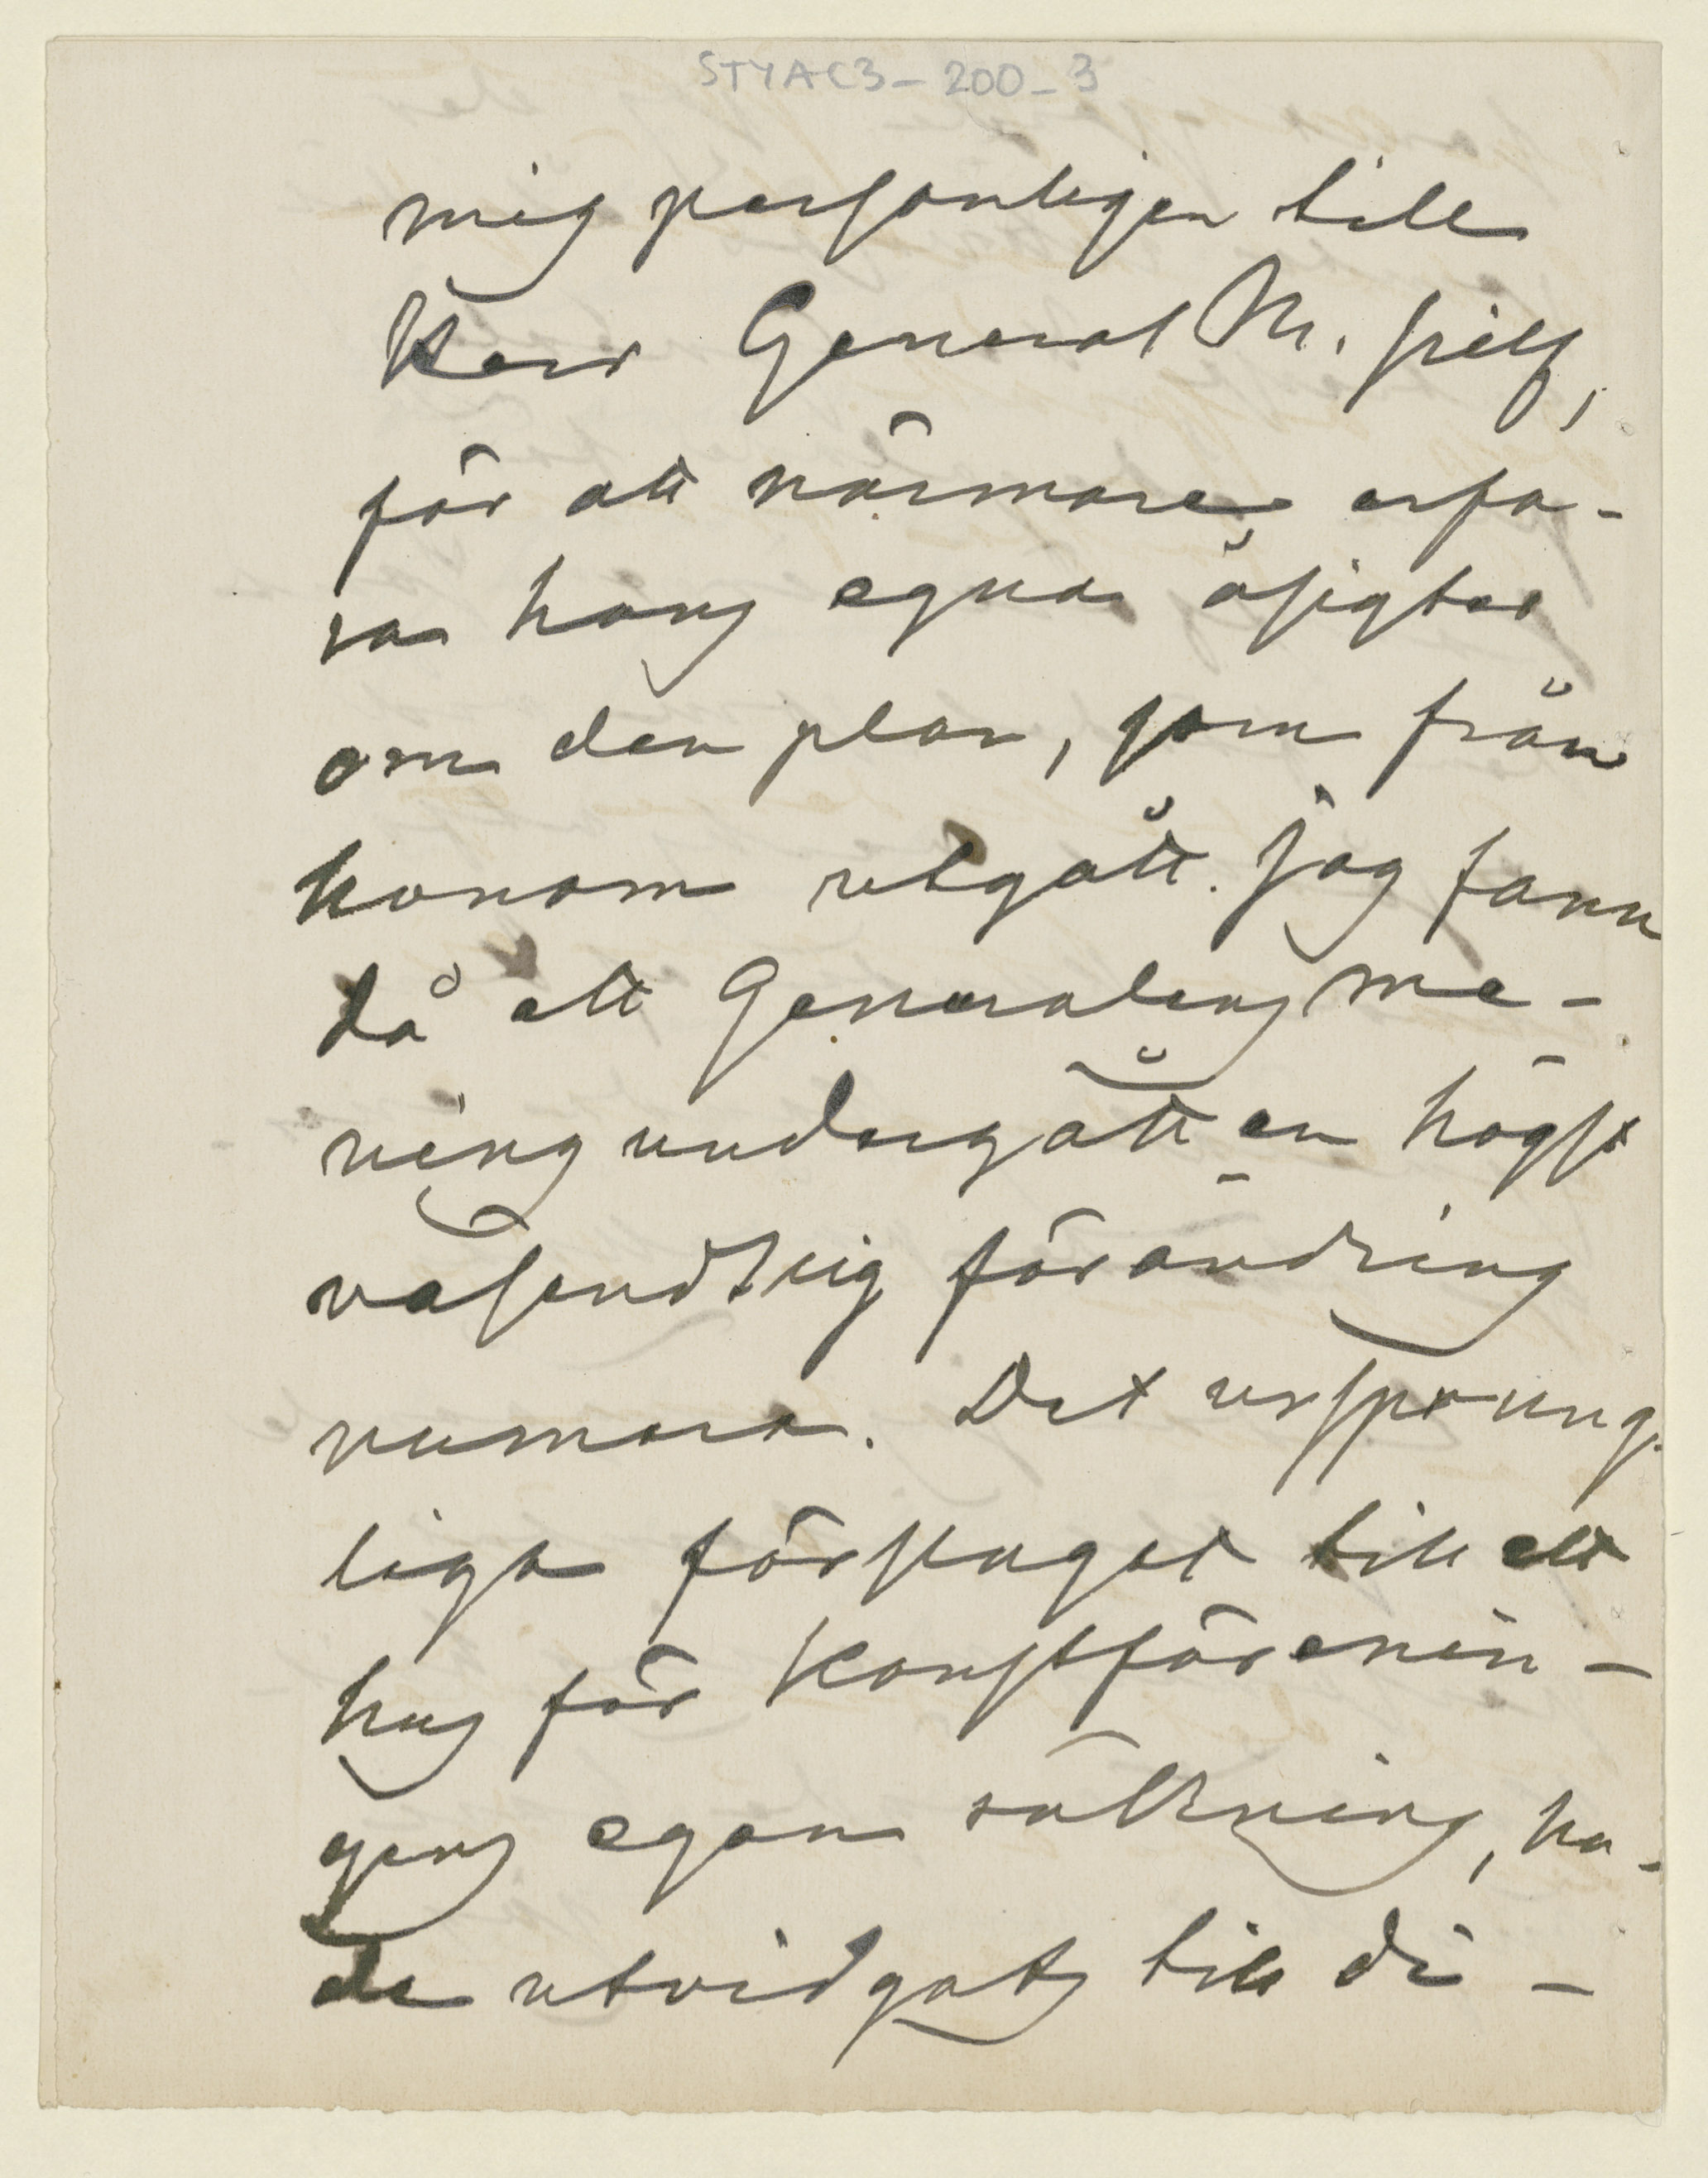 STYAC3-200-3
mig personligen till
Herr General M. sielf,
för att närmare erfa-
ra hans egna åsigter
om den plan, som från
honom utgått. Jag fann
då att Generalens me-
ning undergått en högst
väsendtlig förändring
numera. Det ursprung-
liga förslaget till ett
hus för Konstförenin-
gens egen räkning, ha-
de utvidgats till di-